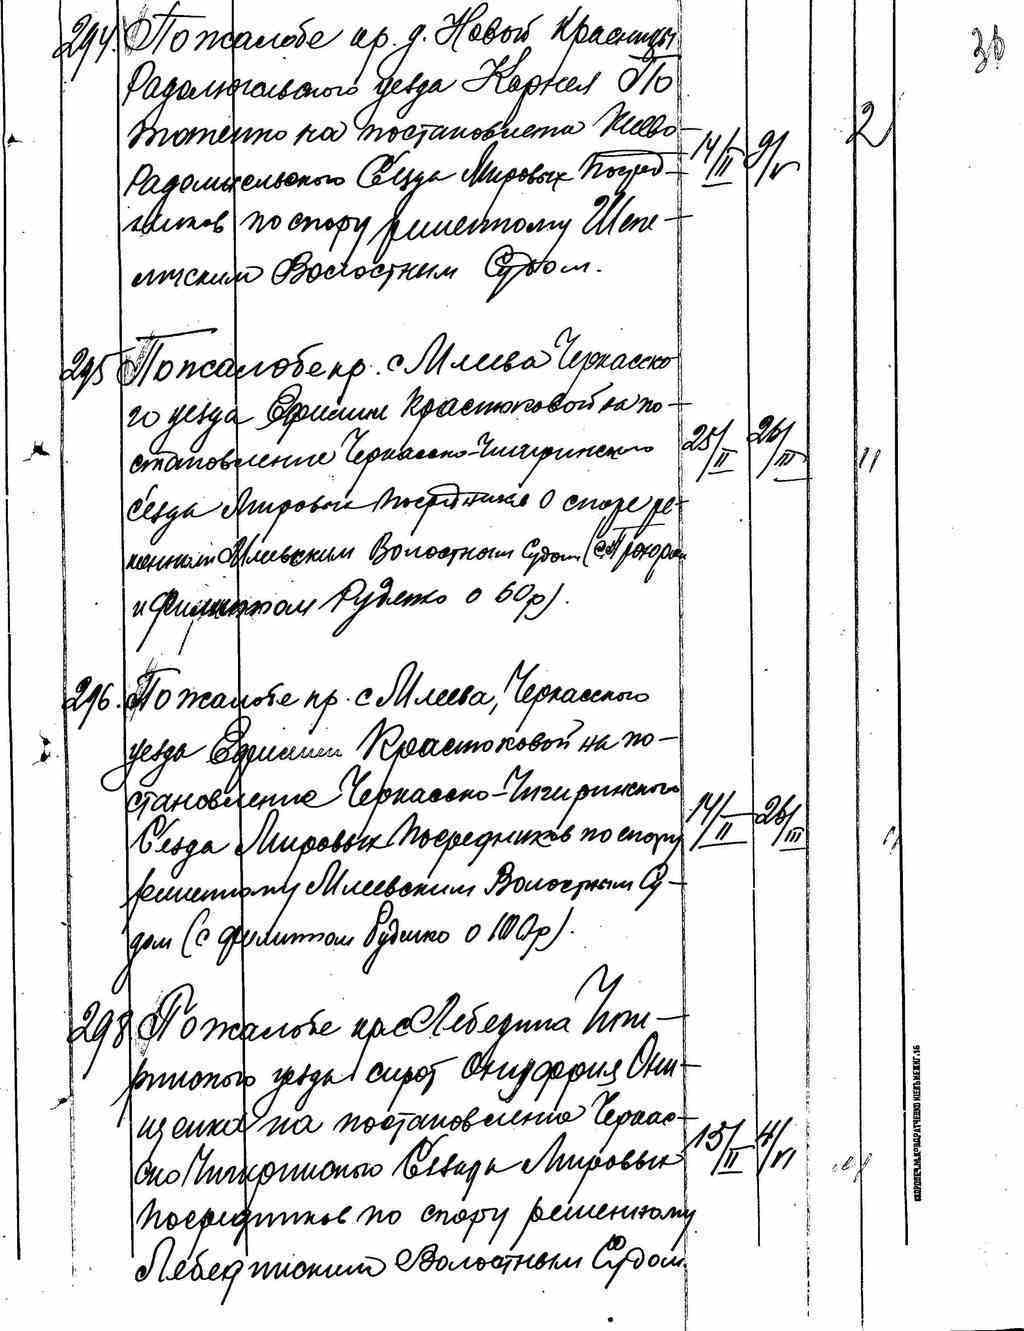 36
294. По жалобе кр. д. Новой Красницы
Радомысльского уезда Корнея По
тапенко на постановлена Киево-
Радомысльского Съезда Мировых Посред-
ников по спору решенному Шепе-
личским Волостным Судом.
14/II 9/V 2
295 По жалобе кр. с Млиева Черкасско
го уезда Ефимии Крастюковой на по-
становление Черкасско-Чигиринского
Съезда Мировых Посредников о споре ре-
шенном Млиевским Волостным Судом (с Прохором
и Филиппом Руденко о 50 р).
25/II 26/III 11
296. По жалобе кр. с Млиева, Черкасского
уезда Ефимии Крастюковой на по-
становление Черкасско-Чигиринского
Съезда Мировых Посредников по спору
решенному Млиевским Волостным Су-
дом (с Филиппом Руденко о 100 р).
14/II 26/III
298 По жалобе кр. с Лебедина Чиги-
ринского уезда сирот Онуфрия Они-
щенка на постановление Черкас-
ско Чигиринского Съезда Мировых
Посредников по спору решенному
Лебединским Волостным Судом.
13/II 4/VI